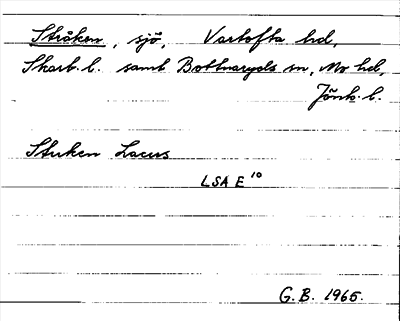 Stråken, sjö, Vartofta hd,
Skarb. l. samt Bottnaryds sn, Mo hd,
Jönk. l.
Struken Lacus
LSA E 10
G. B. 1965.